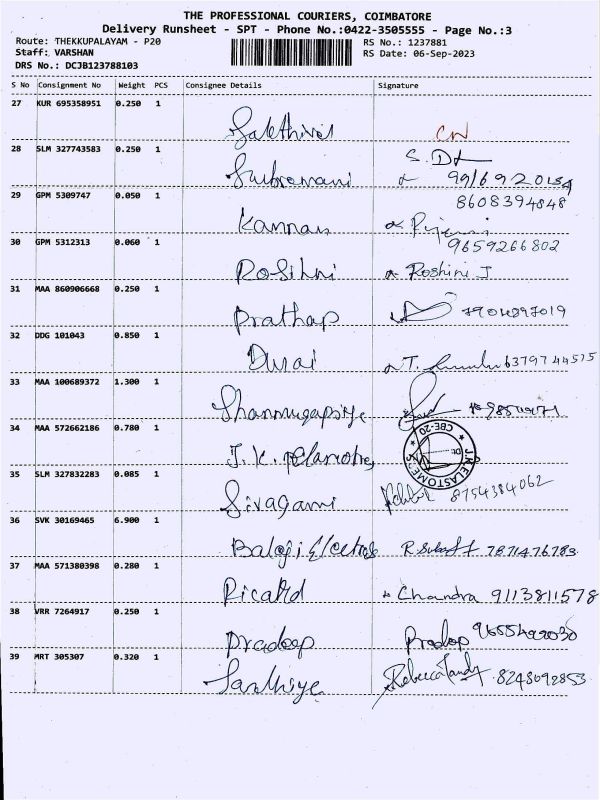 THE PROFESSIONAL COURIERS, COIMBATORE
Delivery Runsheet - SPT - Phone No.:0422-3505555 - Page No.:3
Route: THEKKUPALAYAM - P20
RS No.: 1237881
Staff: VARSHAN
RS Date: 06-Sep-2023
DRS No.: DCJB123788103
S No Consignment No Weight PCS Consignee Details Signature
27 KUR 695358951 0.250 1
Sakthivel CN
28 SLM 327743583 0.250 1 S. D
Subramani
29 GPM 5309747 0.050 1 8608394848
Kannan
30 GPM 5312313 0.060 1 9659266802
Roshini Roshini J
31 MAA 860906668 0.250 1
Prathap
32 DDG 101043 0.850 1
Durai T. 6379744575
33 MAA 100689372 1.300 1
Shanmugapriya
34 MAA 572662186 0.780 1 CBE-20
J.K. J.R ELASTOMERS
35 SLM 327832283 0.085 1
Sivagami 8754384062
36 SVK 30169465 6.900 1
Balaji Electricals 7871476783
37 MAA 571380398 0.280 1
Ricard Chandra 9113811578
38 VRR 7264917 0.250 1
Pradeep Pradeep
39 MRT 305307 0.320 1
Santhiya Rebecca 8248092853